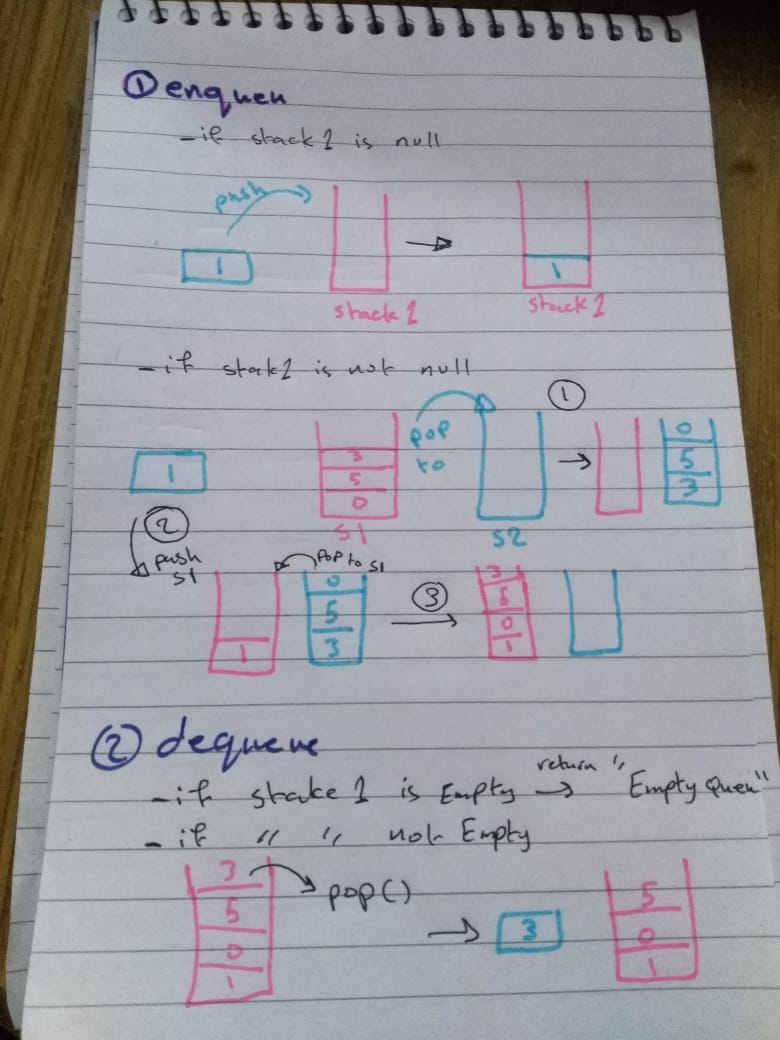 ① enqueu
- if stack 1 is null
push
1
1
stack 1
stack 1
- if stak1 is not null
①
pop
to
1
3
5
0
0
5
3
S1
S2
②
push
S1
pop to S1
1
0
5
3
③
3
5
0
1
② dequeue
- if stake 1 is Empty → return "Empty queu"
- if " " not Empty
3
5
0
1
pop()
→
3
5
0
1